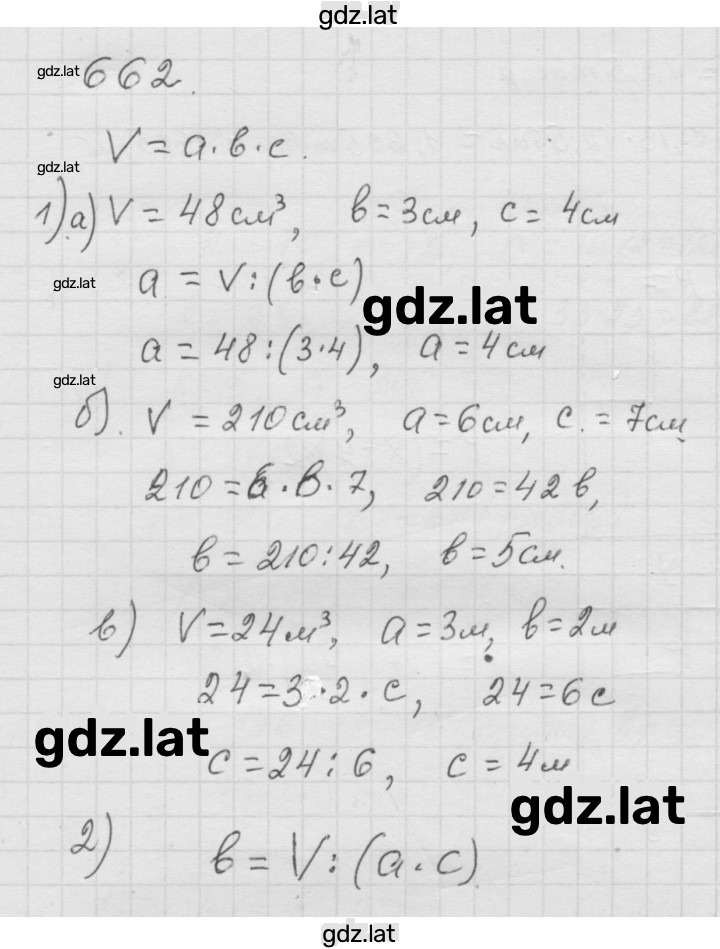 gdz.lat
gdz.lat
662.
V = a · b · c.
gdz.lat
1) а) V = 48 см³, b = 3 см, c = 4 см
gdz.lat
a = V : (b · c)
gdz.lat
a = 48 : (3 · 4), a = 4 см
gdz.lat
б). V = 210 см³, a = 6 см, c. = 7 см
210 = 6 · b · 7, 210 = 42 b,
b = 210 : 42, b = 5 см.
в) V = 24 м³, a = 3 м, b = 2 м
24 = 3 · 2 · c, 24 = 6 c
gdz.lat
c = 24 : 6, c = 4 м
gdz.lat
2) b = V : (a · c)
gdz.lat